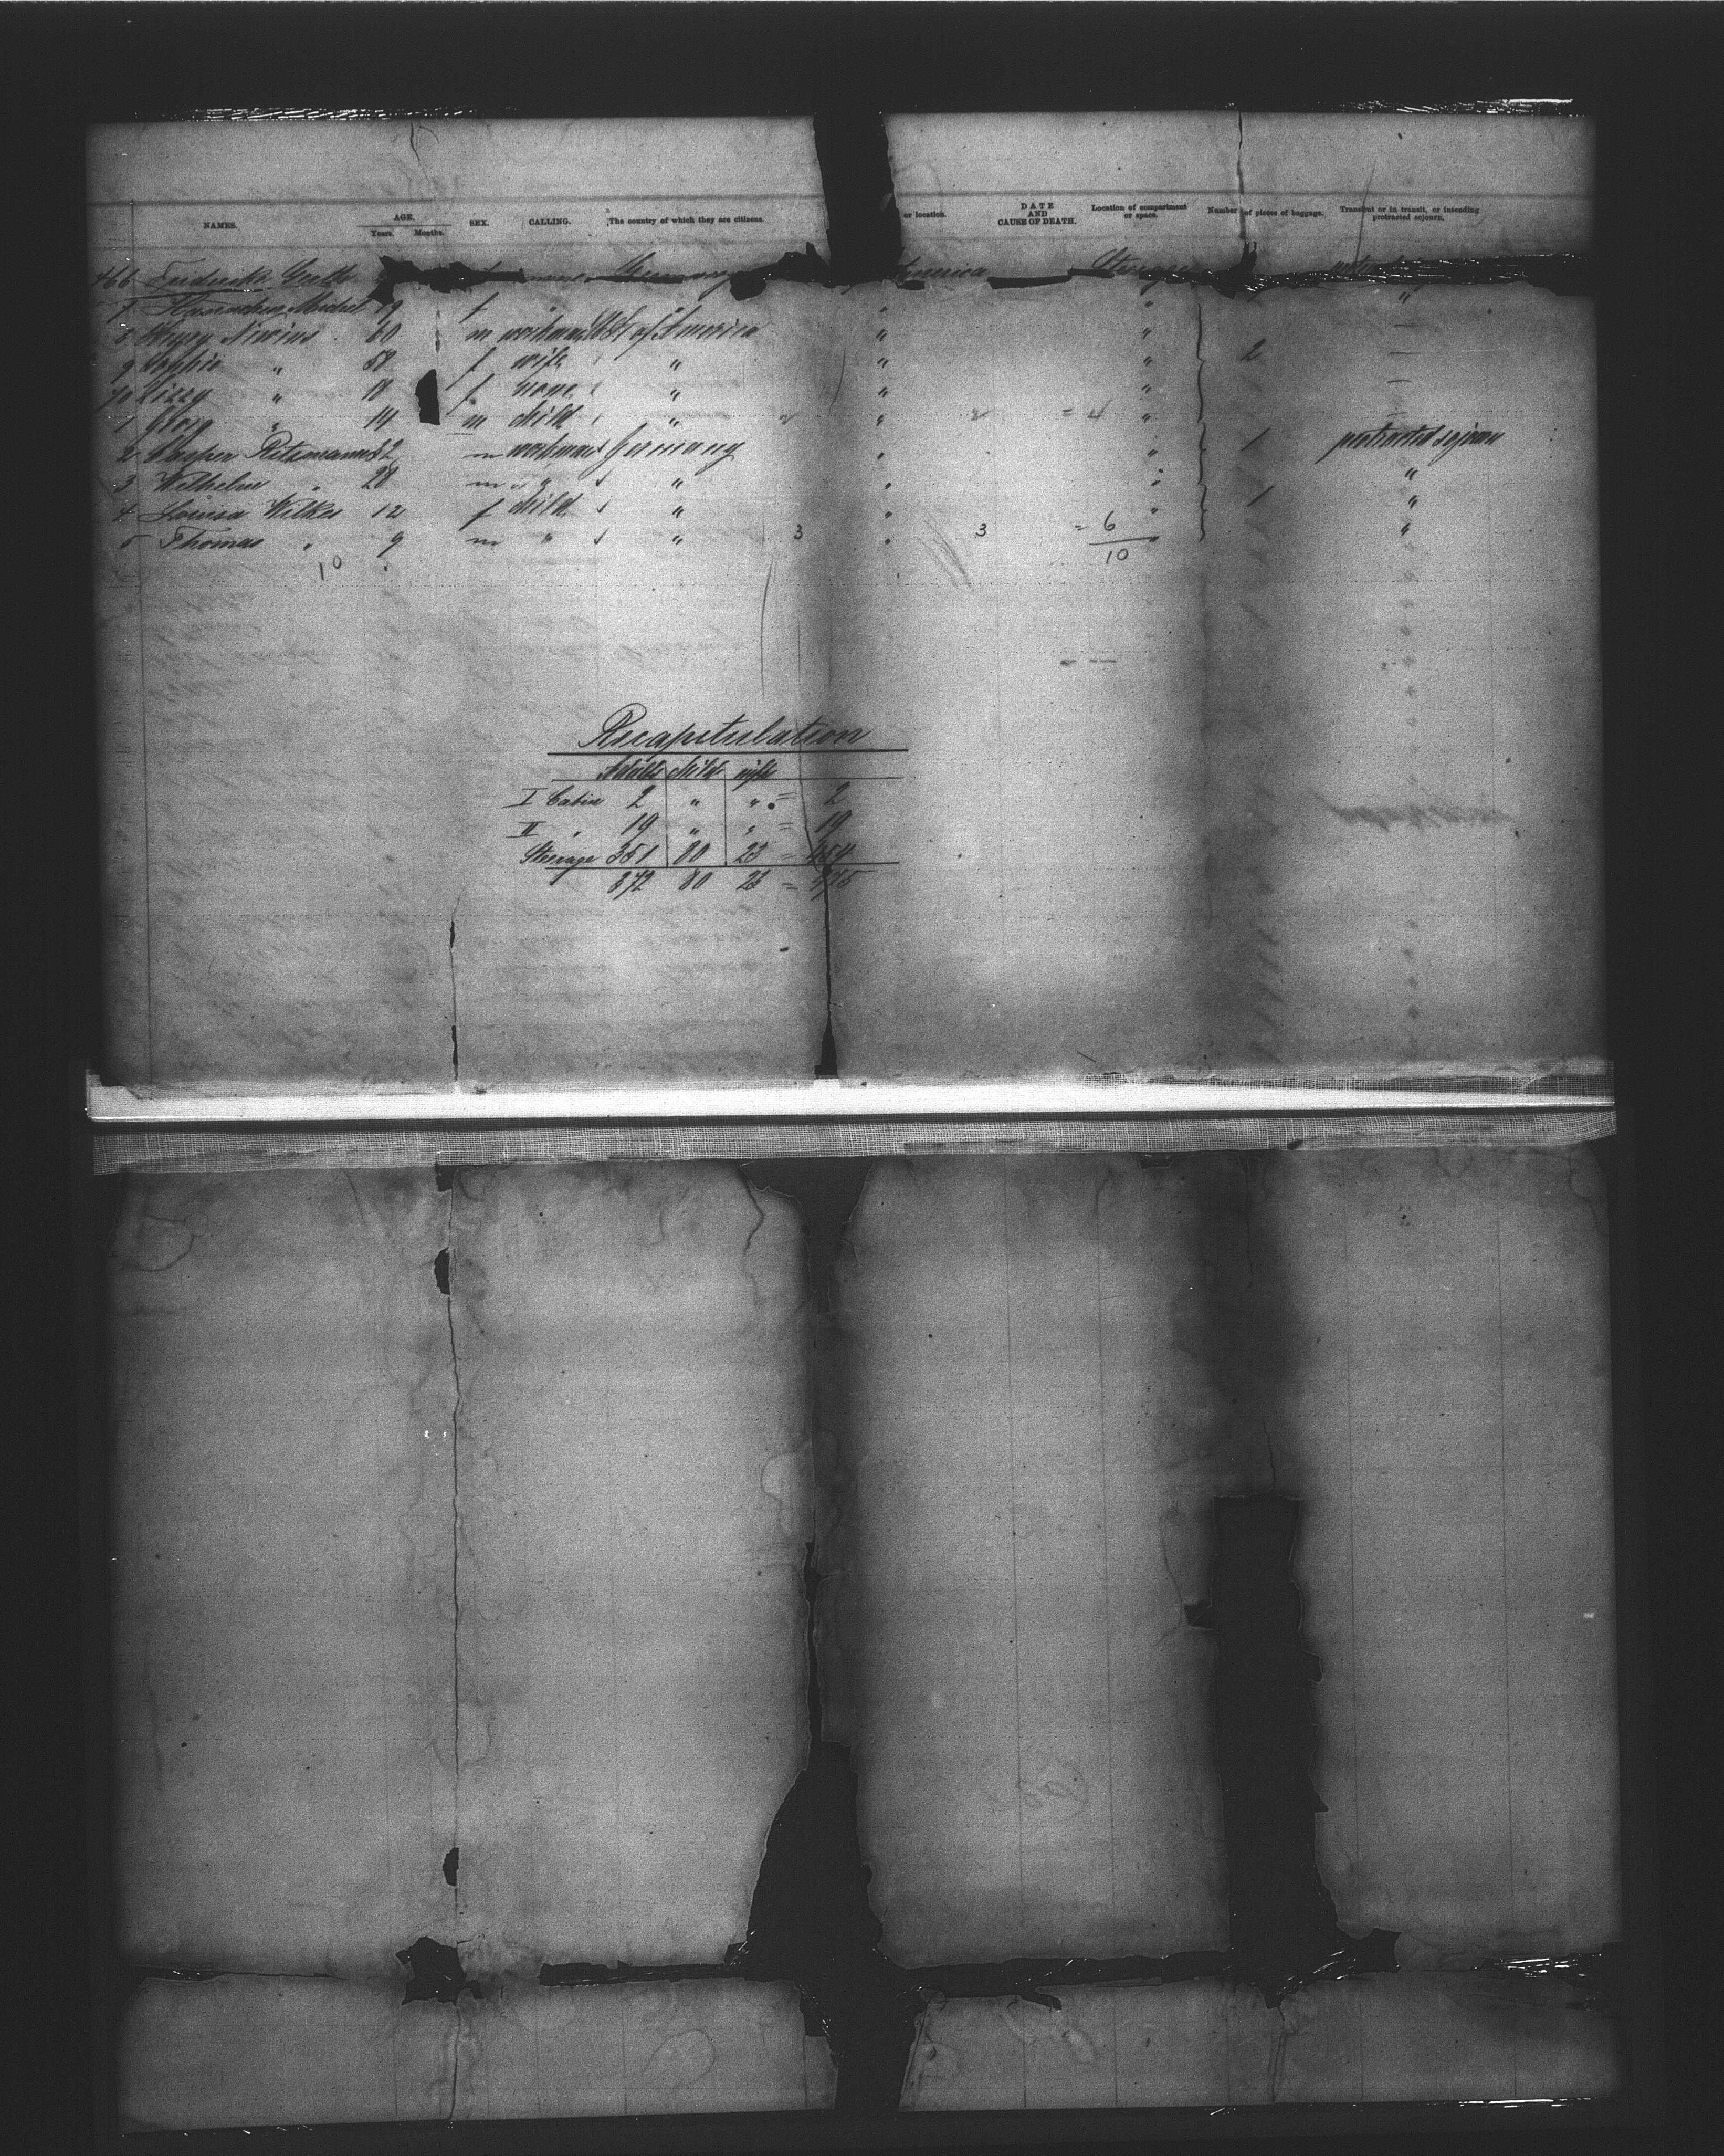 NAMES. AGE. Years. Months. SEX. CALLING. The country of which they are citizens. or location. DATE AND CAUSE OF DEATH. Location of compartment or space. Number of pieces of baggage. Transient or in transit, or intending protracted sojourn.
466 America
7 19 f " " " "
8 60 m workman U.S. of America " " —
9 Sophie " 58 f wife " " " 2 —
70 Lizzy " 18 f none " " " —
1 Georg " 14 m child " 2 " 2 = 4 "
2 Casper Ritzmann 32 m workman Germany " " 1 protracted sojourn
3 Wilhelm " 28 m " " " " "
4 Louisa Wilkes 12 f child " " " 1 "
5 Thomas " 9 m " " 3 " 3 = 6 " "
10 10
Recapitulation
Adults Child inft
I Cabin 2 " " = 2
II " 19 " " = 19
Steerage 351 80 23 = 454
372 80 23 = 475